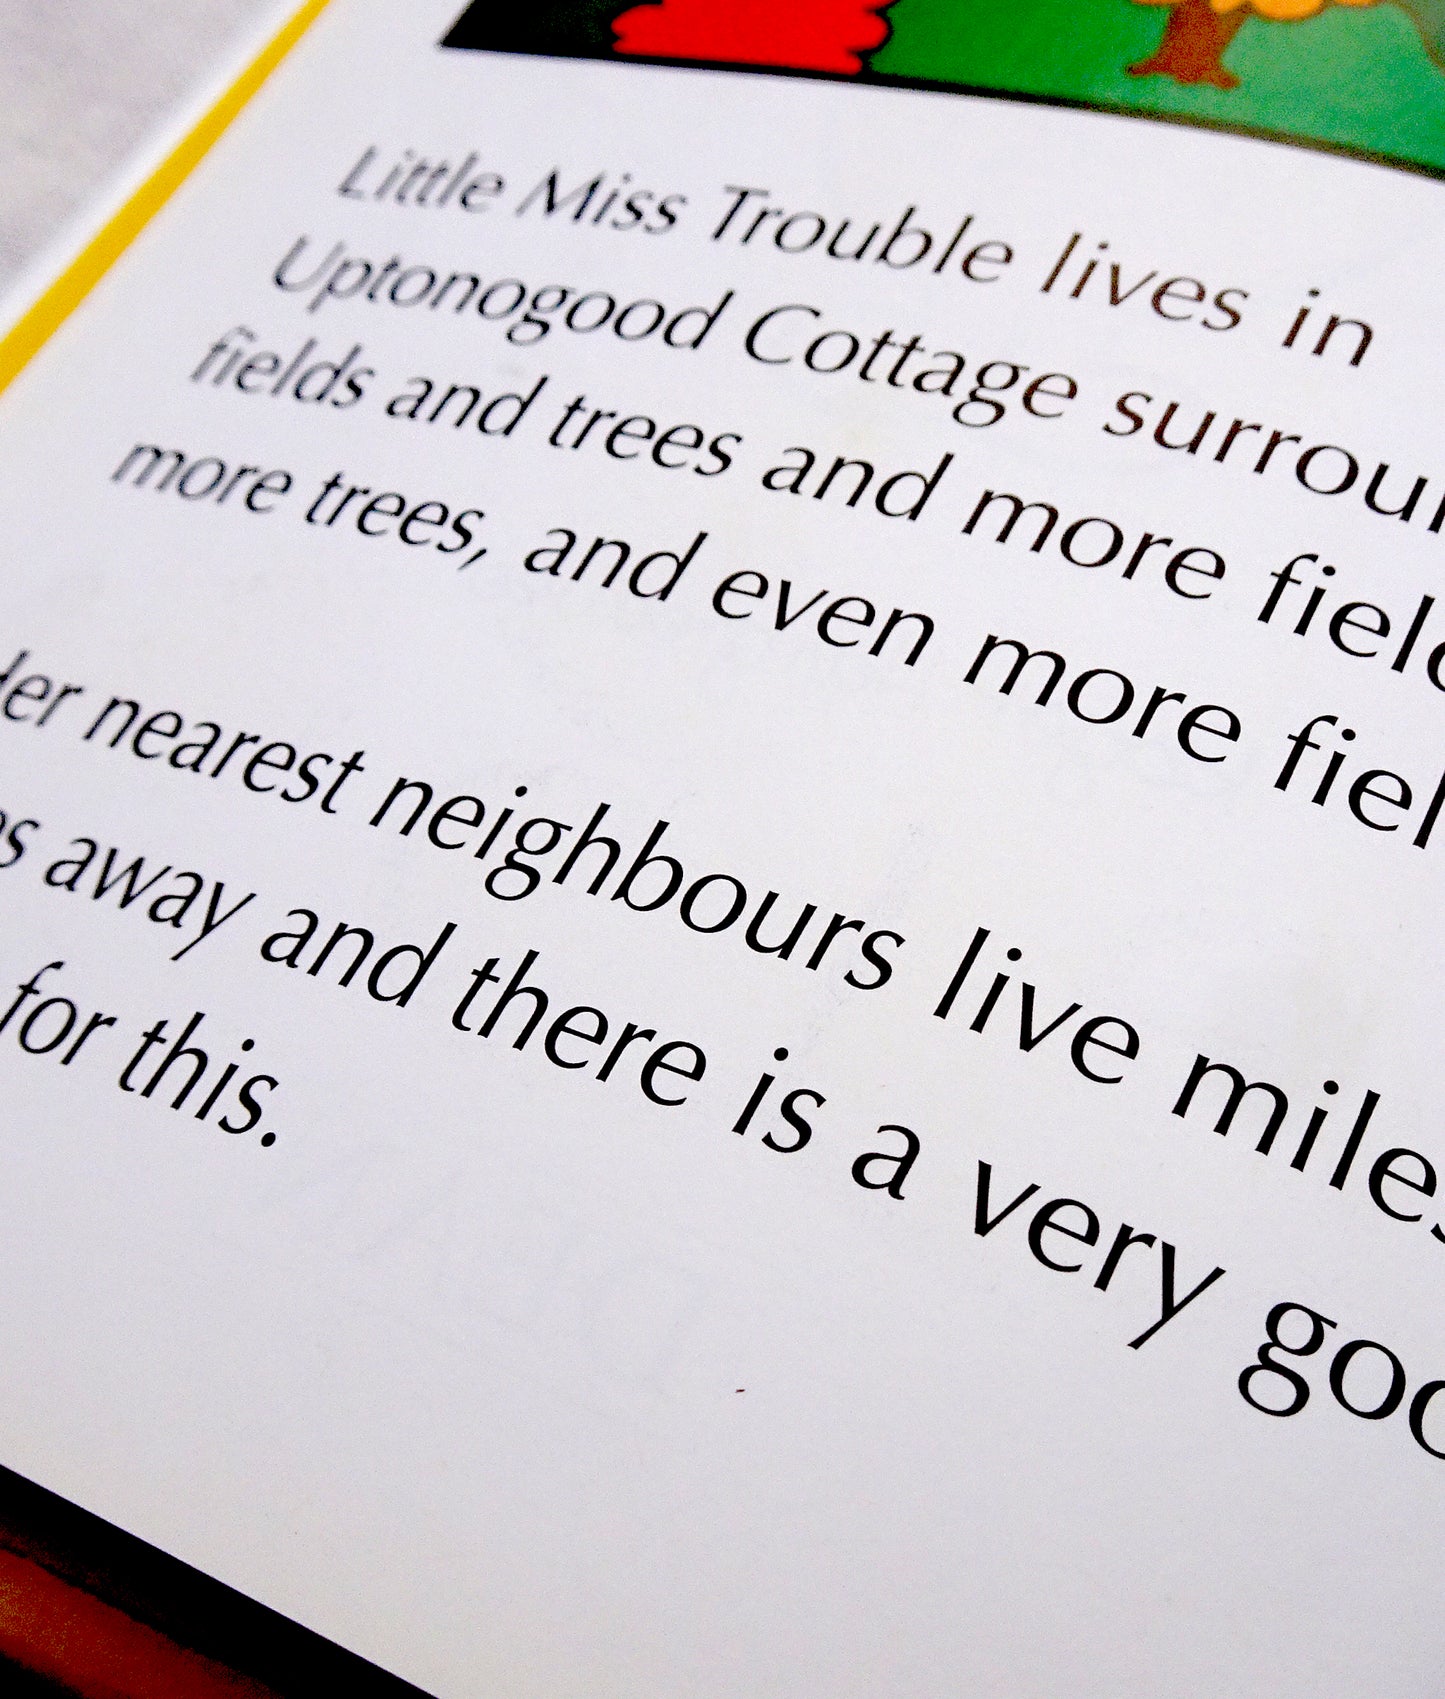 Little Miss Trouble lives in
Uptonogood Cottage
fields and trees and more
more trees, and even more
nearest neighbours live miles
away and there is a very
for this.